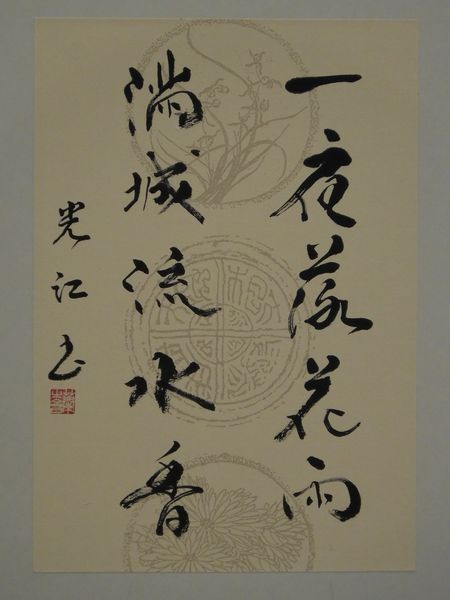 一夜落花雨
满城流水香
光江书